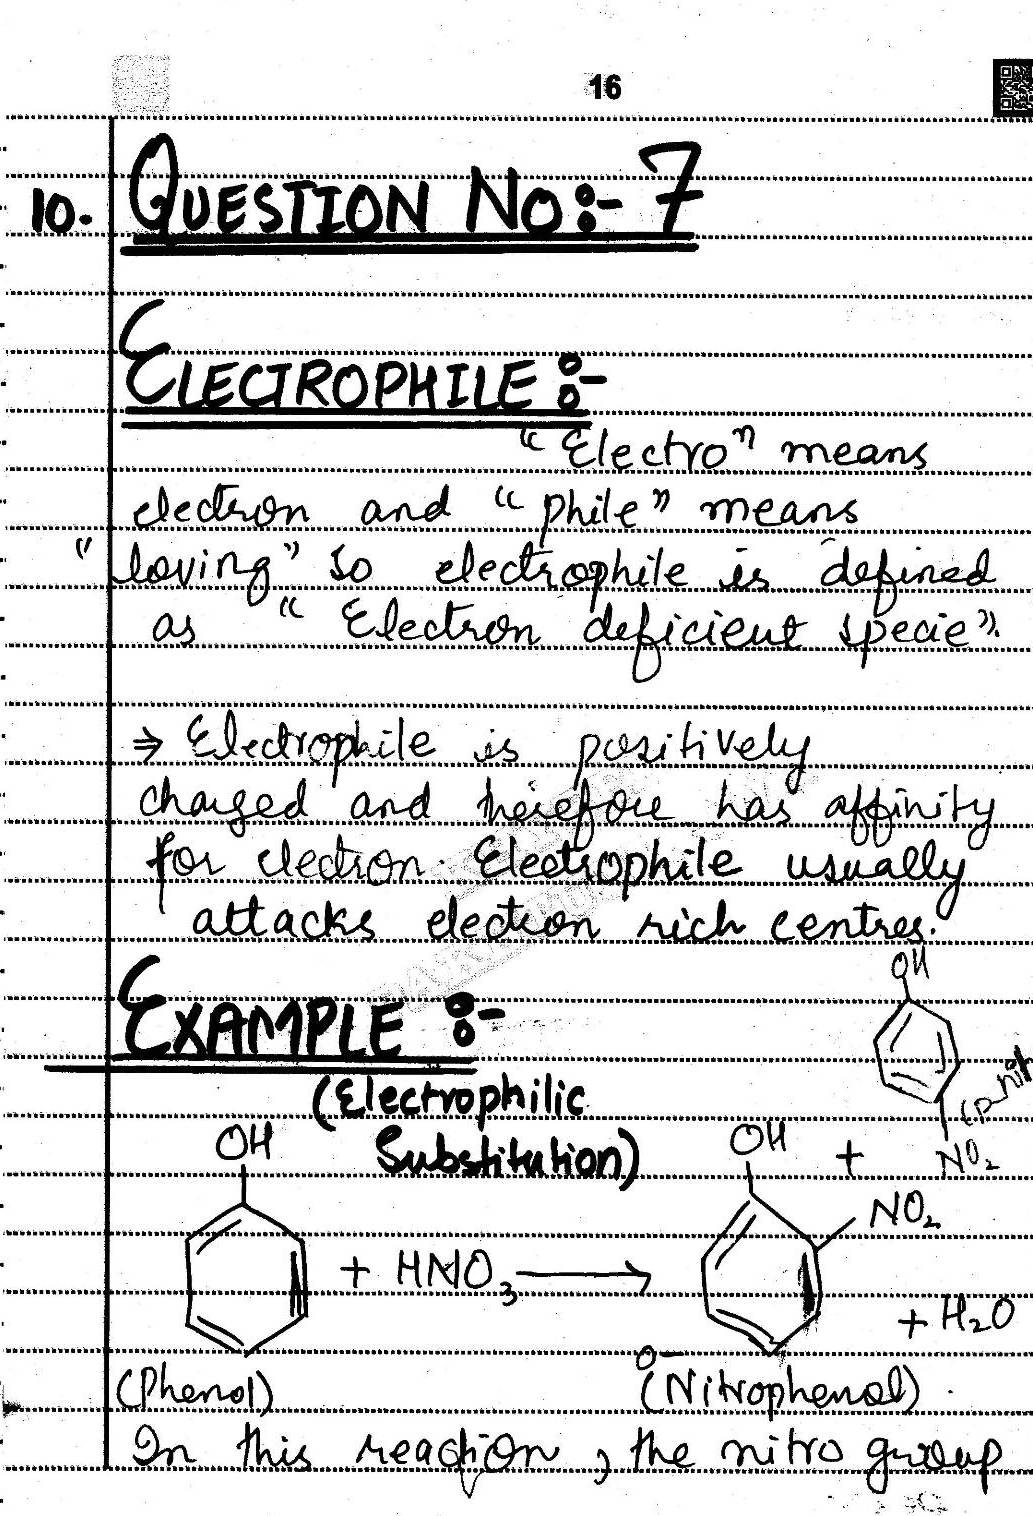 16
10. QUESTION NO:- 7
ELECTROPHILE :-
"Electro" means
electron and "phile" means
"loving" so electrophile is defined
as "Electron deficient specie".
⇒ Electrophile is positively
charged and therefore has affinity
for electron. Electrophile usually
attacks electron rich centres.
EXAMPLE :-
(Electrophilic
Substitution)
OH
+ HNO3 ⟶
(Phenol)
OH
NO2
O- (Nitrophenol)
+
OH
NO2
(p-nit
+ H2O
In this reaction, the nitro group